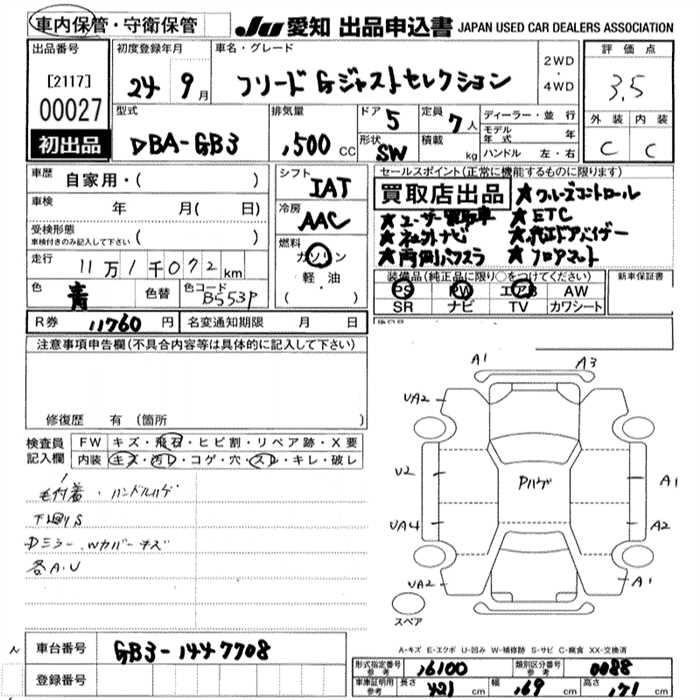 車内保管・守衛保管
JU 愛知 出品申込書 JAPAN USED CAR DEALERS ASSOCIATION
出品番号
[2117]
00027
初出品
初度登録年月
24 9月
車名・グレード
フリード Gジャストセレクション
2WD
・
4WD
評価点
3.5
外装 内装
C C
型式
DBA-GB3
排気量
1500 CC
ドア 5
形状 SW
定員 7人
積載 kg
ディーラー・並行
モデル年式 年
ハンドル 左・右
車歴 自家用・( )
車検 年 月( 日)
受検形態
車検付きのみ記入して下さい ( )
走行 11万1千072km
色 青 色替
色コード B553P
シフト IAT
冷房 AAC
燃料
ガソリン
軽・油
( )
セールスポイント(正常に機能するものに限ります)
買取店出品
★クルーズコントロール
★ユーザー買取車 ★ETC
★ネットナビ ★純正ドアバイザー
★両側パワスラ ★フロアマット
装備品(純正品に限り○をつけてください)
PS PW エアB AW
SR ナビ TV カワシート
新車保証書
R券 11760円
名変通知期限 月 日
注意事項申告欄(不具合内容等は具体的に記入して下さい)
修復歴 有(箇所 )
検査員
記入欄
FW キズ・飛石・ヒビ割・リペア跡・X要
内装 キズ・汚レ・コゲ・穴・スレ・キレ・破レ
毛付着・ハンドルハゲ
下回りS
Dミラー・Wカバーキズ
各A.U
A1 A3
UA2
U2
Pハゲ
A1
UA4
A2
UA2
A1
スペア
A-キズ E-エクボ U-凹み W-補修跡 S-サビ C-腐食 XX-交換済
車台番号 GB3-1447708
登録番号
形式指定番号 参考 16100
類別区分番号 参考 0088
車庫証明用 参考 長さ 421cm 幅 169cm 高さ 171cm